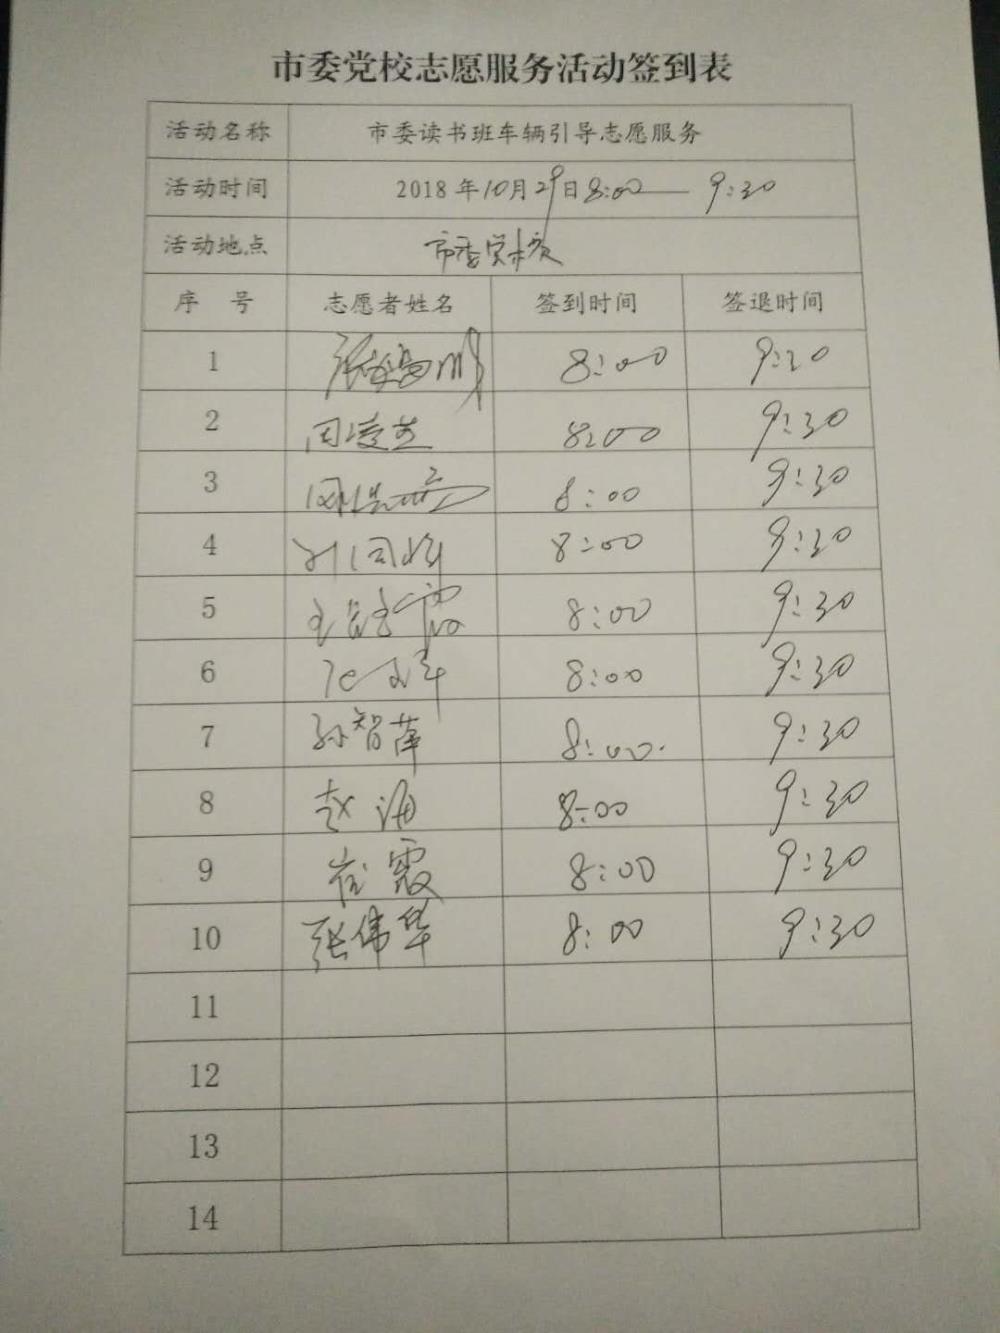 市委党校志愿服务活动签到表
活动名称 市委读书班车辆引导志愿服务
活动时间 2018年10月29日8:00—9:30
活动地点 市委党校
序 号 志愿者姓名 签到时间 签退时间
1 8:00 9:30
2 8:00 9:30
3 8:00 9:30
4 8:00 9:30
5 8:00 9:30
6 8:00 9:30
7 孙智萍 8:00 9:30
8 赵海 8:00 9:30
9 崔霞 8:00 9:30
10 张伟华 8:00 9:30
11
12
13
14